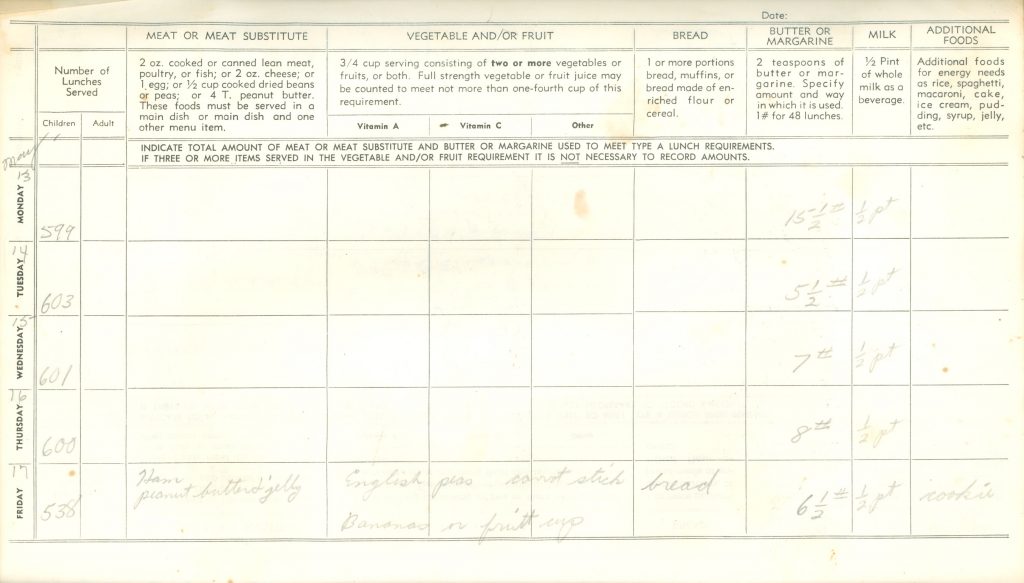 Date:
MEAT OR MEAT SUBSTITUTE
VEGETABLE AND/OR FRUIT
BREAD
BUTTER OR
MARGARINE
MILK
ADDITIONAL
FOODS
Number of
Lunches
Served
2 oz. cooked or canned lean meat,
poultry, or fish; or 2 oz. cheese; or
1 egg; or ½ cup cooked dried beans
or peas; or 4 T. peanut butter.
These foods must be served in a
main dish or main dish and one
other menu item.
3/4 cup serving consisting of two or more vegetables or
fruits, or both. Full strength vegetable or fruit juice may
be counted to meet not more than one-fourth cup of this
requirement.
1 or more portions
bread, muffins, or
bread made of en-
riched flour or
cereal.
2 teaspoons of
butter or mar-
garine. Specify
amount and way
in which it is used.
1# for 48 lunches.
½ Pint
of whole
milk as a
beverage.
Additional foods
for energy needs
as rice, spaghetti,
macaroni, cake,
ice cream, pud-
ding, syrup, jelly,
etc.
Children
Adult
Vitamin A
Vitamin C
Other
May
INDICATE TOTAL AMOUNT OF MEAT OR MEAT SUBSTITUTE AND BUTTER OR MARGARINE USED TO MEET TYPE A LUNCH REQUIREMENTS.
IF THREE OR MORE ITEMS SERVED IN THE VEGETABLE AND/OR FRUIT REQUIREMENT IT IS NOT NECESSARY TO RECORD AMOUNTS.
13
MONDAY
599
15 1/2 #
1/2 pt
14
TUESDAY
603
5 1/2 #
1/2 pt
15
WEDNESDAY
601
7 #
1/2 pt
16
THURSDAY
600
8 #
1/2 pt
17
FRIDAY
538
Ham
peanut butter & jelly
English peas carrot stick
Bananas or fruit cup
bread
6 1/2 #
1/2 pt
cookie